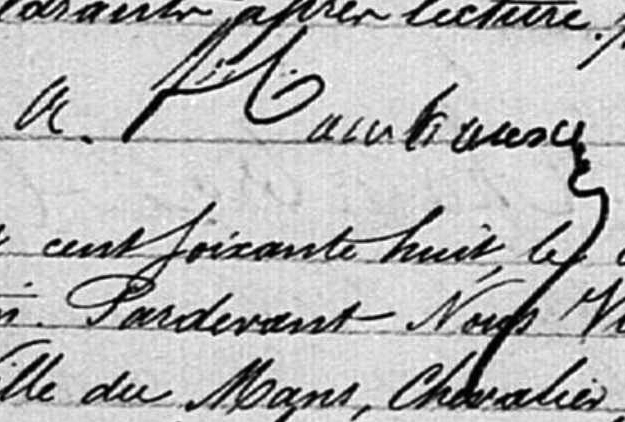 après lecture.
a.
cent soixante huit, le
Pardevant Nous
ville du Mans, Chevalier